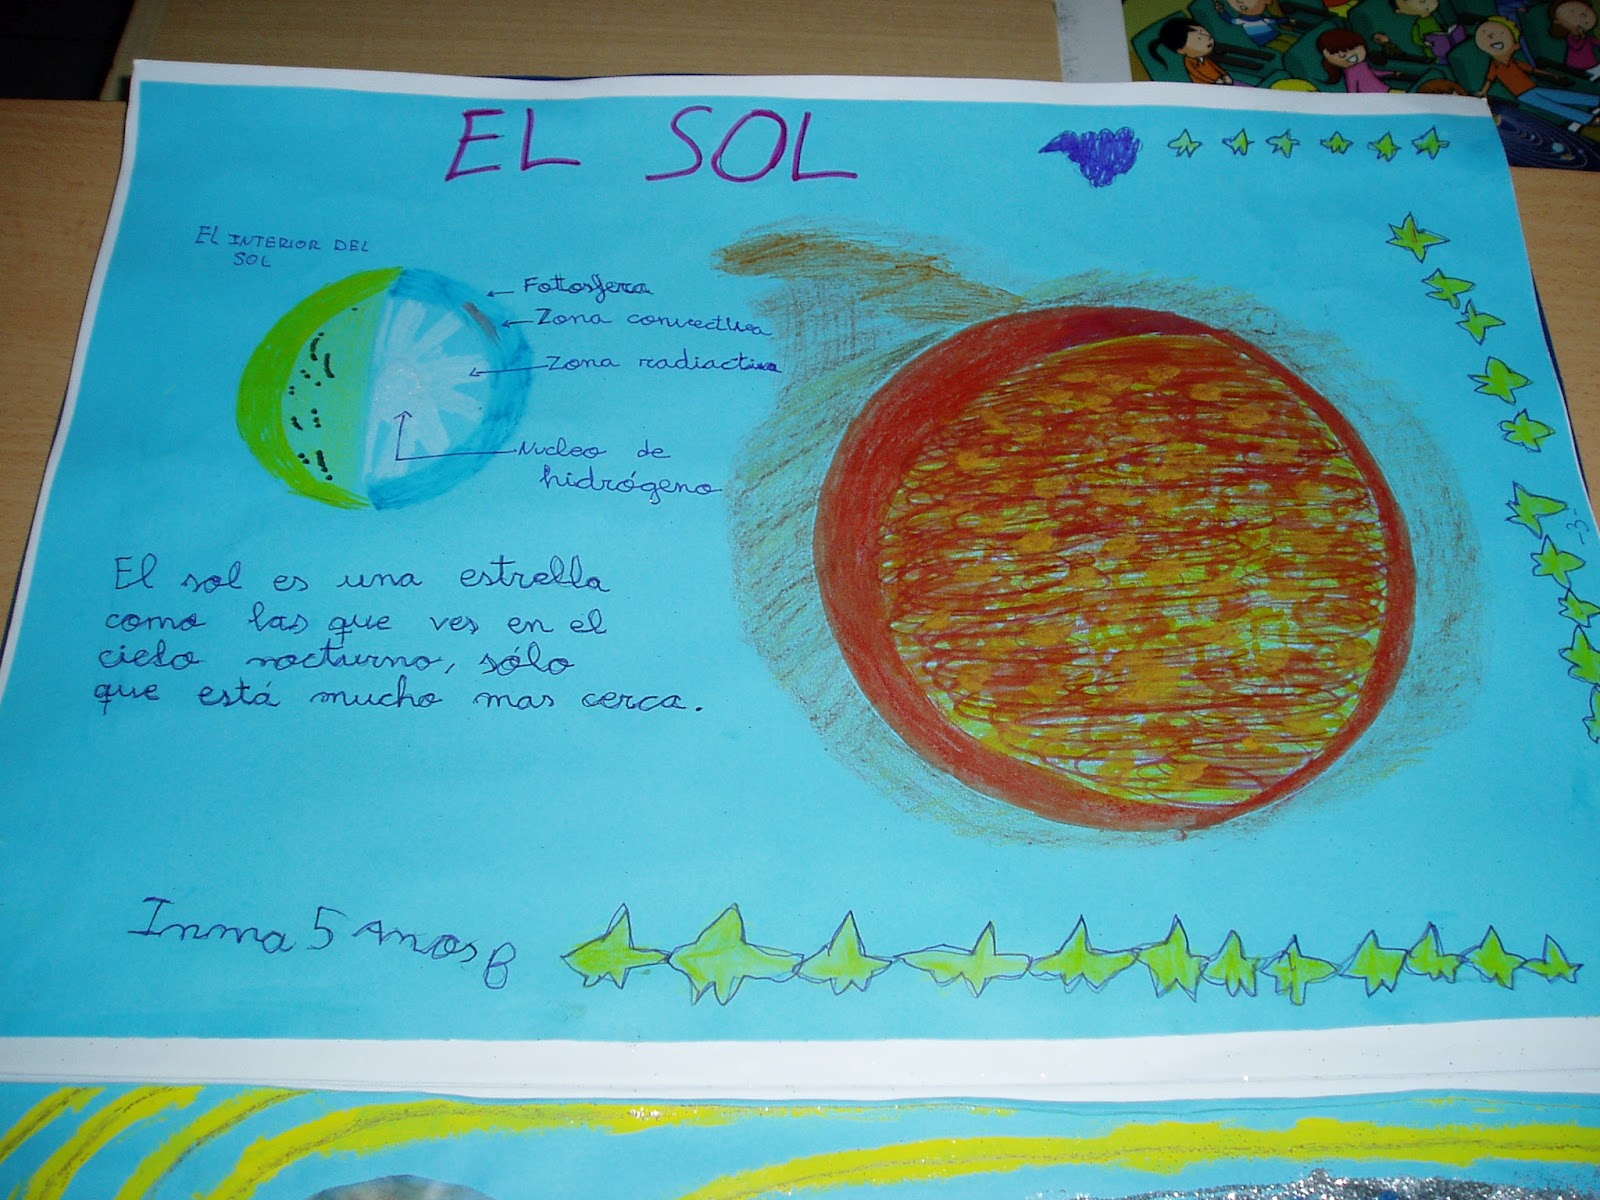 EL SOL
EL INTERIOR DEL
SOL
Fottosfera
Zona convectiva
Zona radiactiva
Nucleo de
hidrógeno
El sol es una estrella
como las que ves en el
cielo nocturno, sólo
que está mucho mas cerca.
Inma 5 Años B
-3-